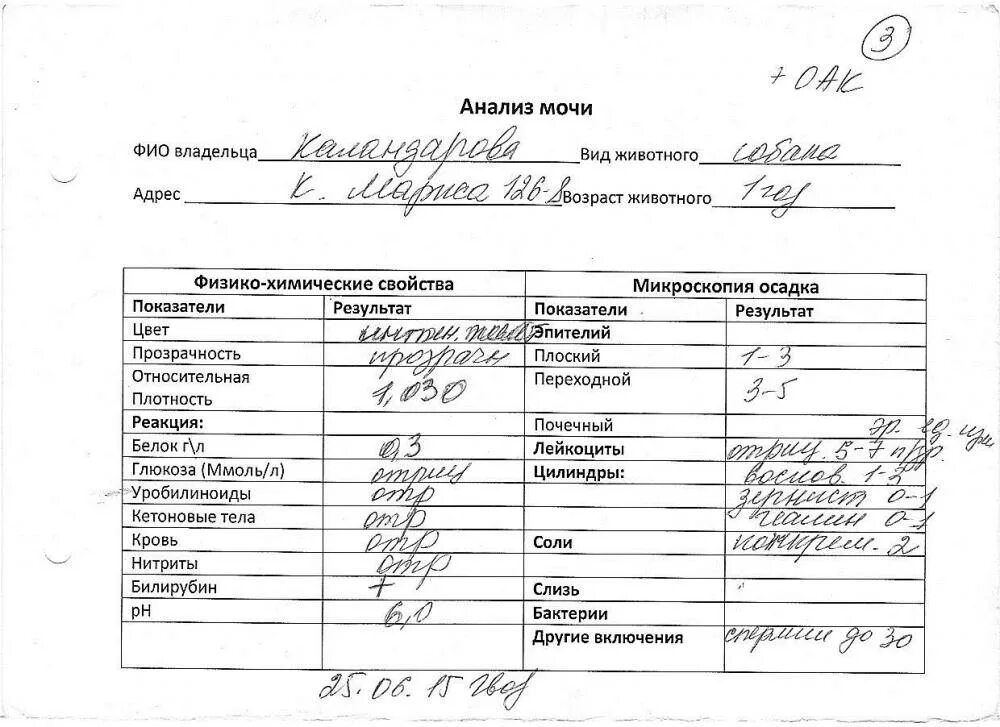 3
+ ОАК
Анализ мочи
ФИО владельца Каландарова Вид животного собака
Адрес К. Маркса 126-8 Возраст животного 1 год
Физико-химические свойства Микроскопия осадка
Показатели Результат Показатели Результат
Цвет интен. Эпителий
Прозрачность прозрачн Плоский 1-3
Относительная Плотность 1,030 Переходной 3-5
Реакция: Почечный эр. ед. изм
Белок г\л 0,3 Лейкоциты отриц. 5-7 п/зр.
Глюкоза (Ммоль/л) отриц Цилиндры: восков. 1-2
Уробилиноиды отр зернист 0-1
Кетоновые тела отр гиалин 0-1
Кровь отр Соли 2
Нитриты отр
Билирубин + Слизь
pH 6,0 Бактерии
Другие включения спермии до 30
25.06.15